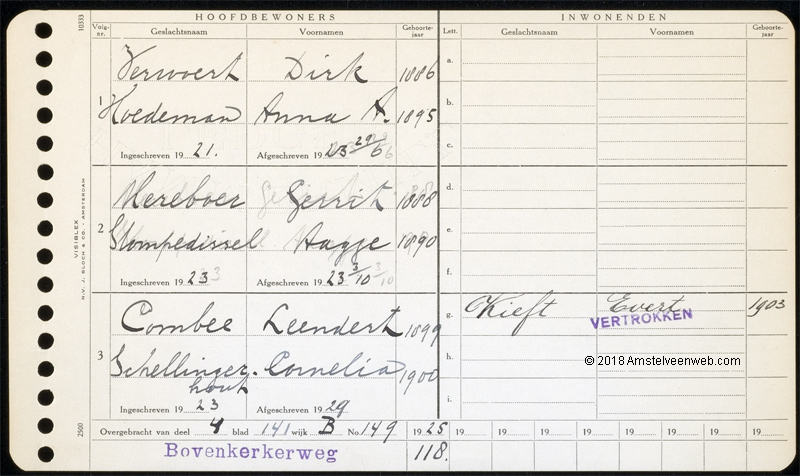 HOOFDBEWONERS INWONENDEN
10333 Volg-nr. Geslachtsnaam Voornamen Geboorte-jaar Lett. Geslachtsnaam Voornamen Geboorte-jaar
Verwoert Dirk 1886 a.
1 Hoedeman Anna A. 1895 b.
c.
Ingeschreven 19 21. Afgeschreven 19 23 29/6
Mereboer Gerrit 1888 d.
2 Stompedissel Aagje 1890 e.
f.
Ingeschreven 19 23 Afgeschreven 19 23 3/10
VISIBLEX
N.V. J. BLOCH & CO. / AMSTERDAM
Combee Leendert 1899 g. Kieft Evert 1903
VERTROKKEN
3 Schellinger- Cornelia 1900 h.
hout
© 2018 Amstelveenweb.com
Ingeschreven 19 23 Afgeschreven 19 29 i.
2500
Overgebracht van deel 4 blad 141 wijk B No. 149 19 25 19 19 19 19 19 19 19 19
Bovenkerkerweg 118.